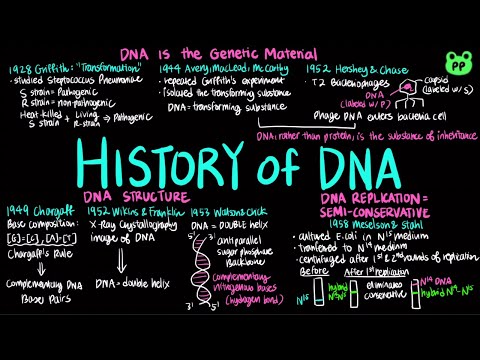 DNA is the Genetic Material
PP
1928 Griffith: "Transformation"
• studied Steptococcus Pneumoniae
S strain = Pathogenic
R strain = non-pathogenic
Heat-killed S strain + Living R-strain → Pathogenic
1944 Avery, MacLeod, McCarthy
• repeated Griffith's experiment
• isolated the transforming substance
DNA = transforming substance
1952 Hershey & Chase
• T2 Bacteriophages
capsid
(labeled w/ S)
DNA
(labeled w/ P)
Phage DNA enters bacteria cell
DNA, rather than protein, is the substance of inheritance
HISTORY of DNA
DNA STRUCTURE
1949 Chargaff
Base composition:
[G]=[C], [A]=[T]
Chargaff's Rule
complementary DNA
Base Pairs
1952 Wilkins & Franklin
X-Ray Crystallography
image of DNA
DNA = double helix
1953 Watson & Crick
DNA = DOUBLE helix
5' 3'
antiparallel
sugar phosphate
Backbone
complementary
nitrogenous bases
(hydrogen bond)
3' 5'
DNA REPLICATION =
SEMI-CONSERVATIVE
1958 Meselson & Stahl
• cultured E.coli in N15 medium
• transferred to N14 medium
• centrifuged after 1st & 2nd rounds of replication
Before
After 1st replication
N15
hybrid
eliminated
conservative
N14 DNA
hybrid N14-N15